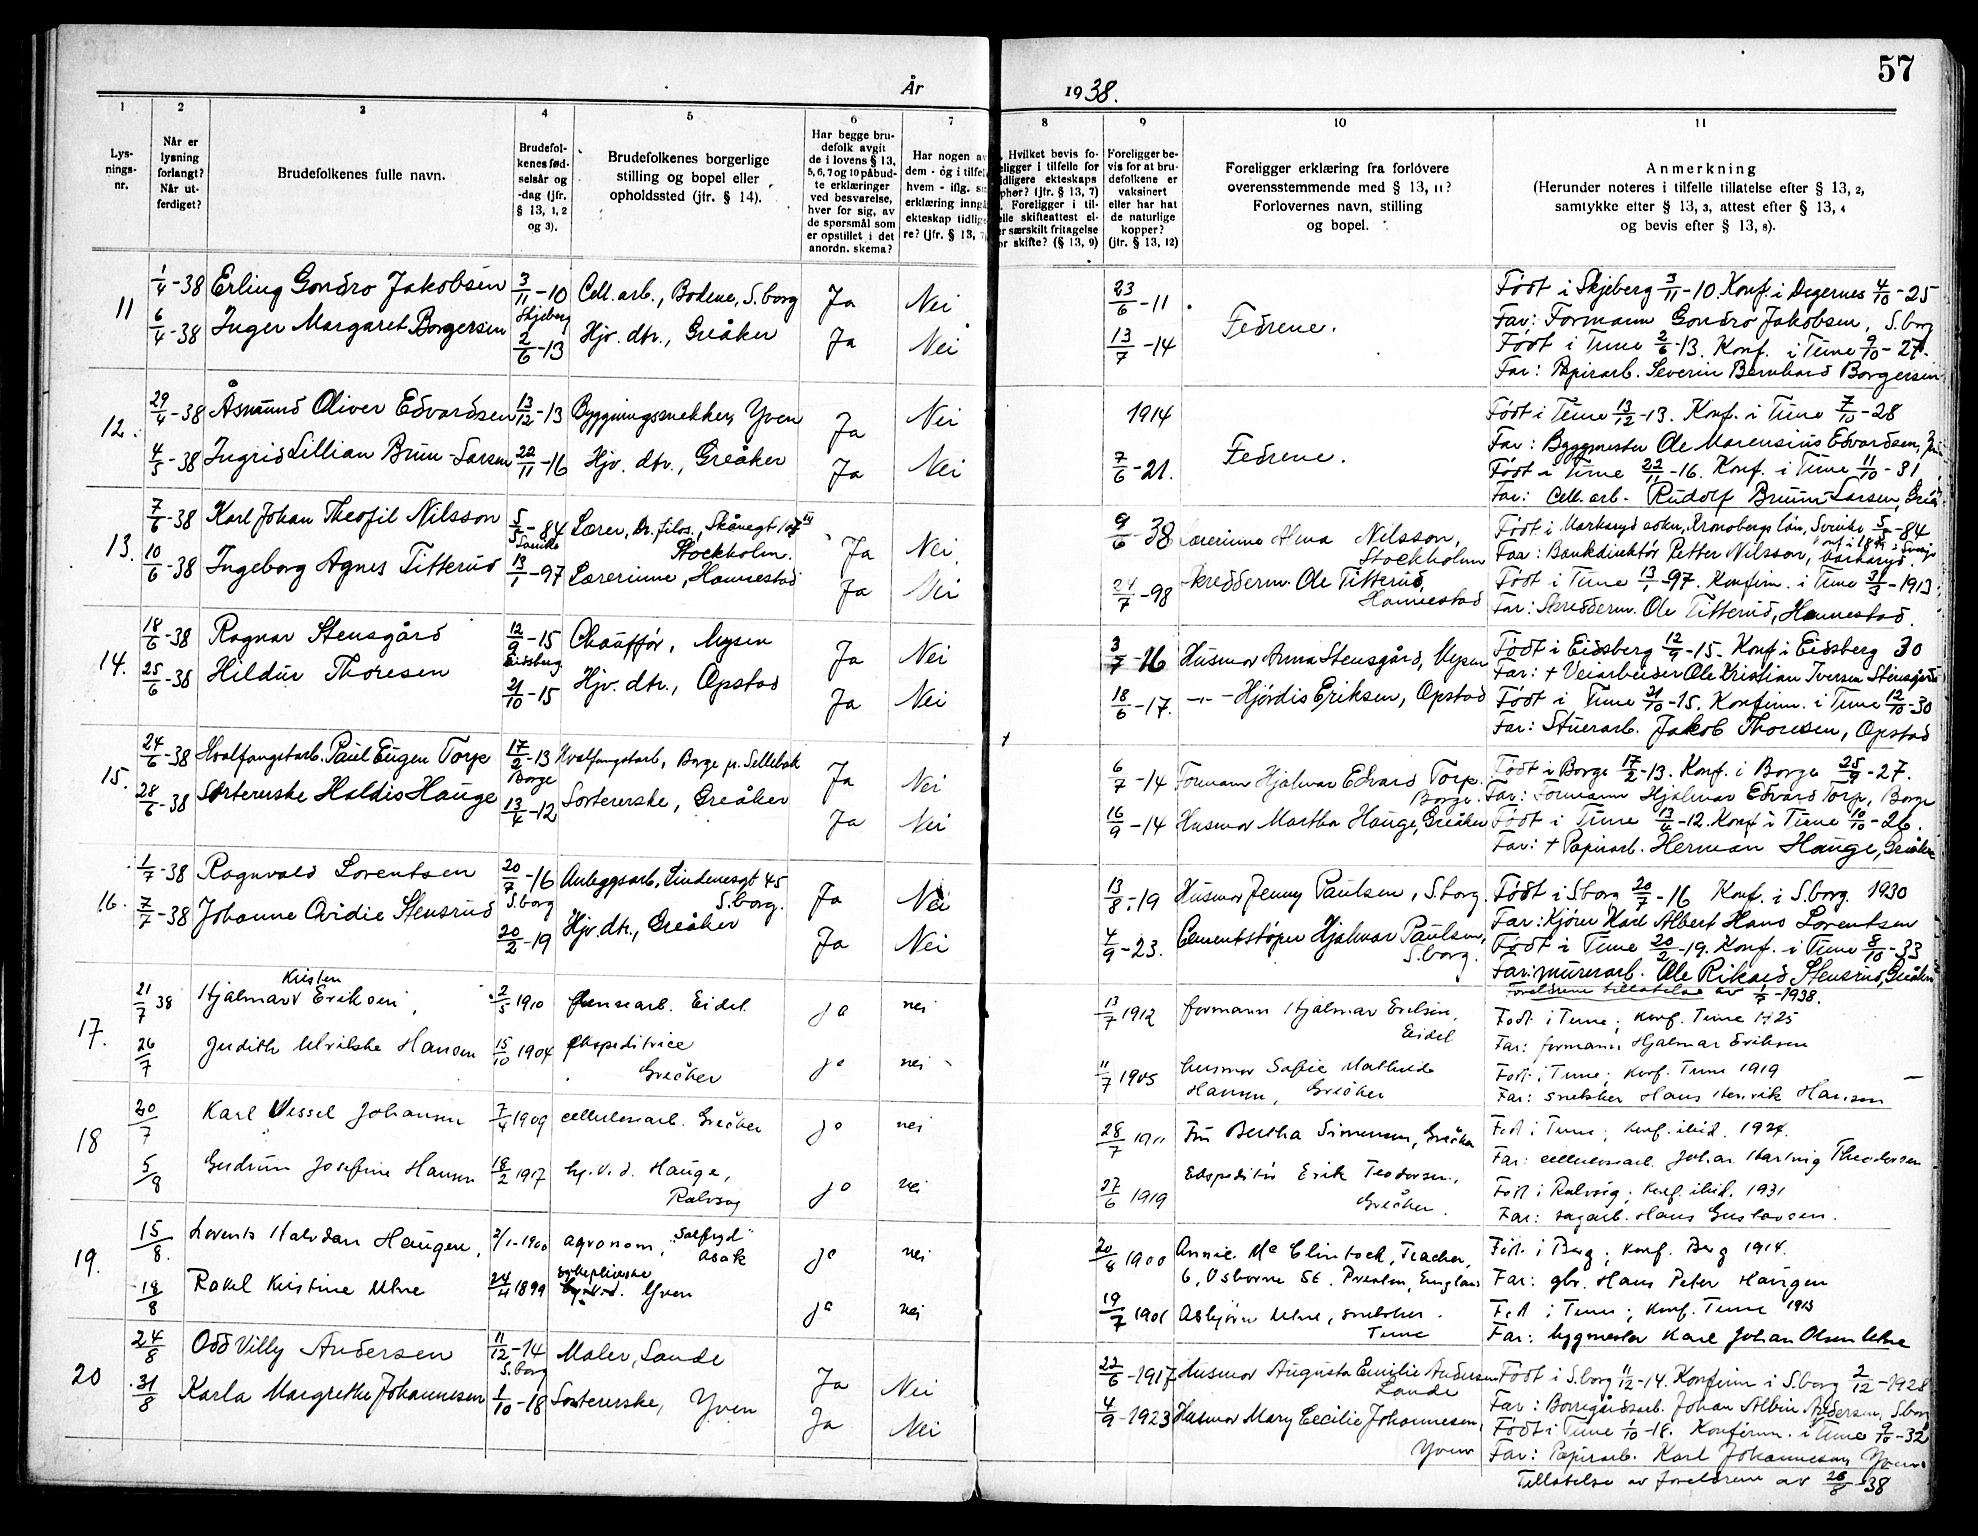 57
År 1938.
1 2 3 4 5 6 7 8 9 10 11
Lys-
nings-
nr.
Når er
lysning
forlangt?
Når ut-
ferdiget?
Brudefolkenes fulle navn.
Brudefol-
kenes fød-
selsår og
-dag (jfr.
§ 13, 1, 2
og 3).
Brudefolkenes borgerlige
stilling og bopel eller
opholdssted (jfr. § 14).
Har begge bru-
defolk avgit
de i lovens § 13,
5, 6, 7 og 10 påbud-
te erklæringer
ved besvarelse,
hver for sig, av
de spørsmål som
er opstillet i det
anordn. skema?
Har nogen av
dem - og i tilfel
hvem - iflg. si
erklæring inngå
ekteskap tidlige
re? (jfr. § 13, 7
Hvilket bevis fo-
ligger i tilfelle for
idligere ekteskaps
phør? (jfr. § 13, 7)
Foreligger i til-
elle skifteattest el-
r særskilt fritagelse
or skifte? (§ 13, 9)
Foreligger be-
vis for at bru-
defolkene er
vaksinert
eller har hat
de naturlige
kopper?
(jfr. § 13, 12)
Foreligger erklæring fra forlovere
overensstemmende med § 13, 11?
Forlovernes navn, stilling
og bopel.
Anmerkning
(Herunder noteres i tilfelle tillatelse efter § 13, 2,
samtykke efter § 13, 3, attest efter § 13, 4
og bevis efter § 13, 8).
11 1/4-38 Erling Gondro Jakobsen 3/11-10 Skjeberg Cell. arb., Bodene, S.borg Ja Nei 23/6-11 Fedrene. Født i Skjeberg 3/11-10. Konf. i Degernes 4/10-25
Far: Formann Gondro Jakobsen, S.borg
6/4-38 Inger Margaret Borgersen 2/6-13 Hjv. dtr., Greåker Ja Nei 13/7-14 Født i Tune 2/6-13. Konf. i Tune 9/10-27.
Far: Papirarb. Severin Bernhard Borgersen
12. 29/4-38 Åsmund Oliver Edvardsen 13/12-13 Bygningssnekker, Yven Ja Nei 1914 Fedrene. Født i Tune 13/12-13. Konf. i Tune 7/10-28
Far: Byggmester Ole Marensius Edvardsen,
4/5-38 Ingrid Lillian Bruu-Larsen 22/11-16 Hjv. dtr., Greåker Ja Nei 7/6-21. Født i Tune 22/11-16. Konf. i Tune 11/10-31
Far: Cell. arb. Rudolf Bruun-Larsen, Greå
13. 7/6-38 Karl Johan Theofil Nilsson 5/5-84 Sverike Lærer, Dr. filos., Skånegt 107 III
Stockholm. Ja Nei 9/6 38 Lærerinne Alma Nilsson,
Stockholm Født i Markaryd sokn, Kronobergs län, Sverike 5/5-84
Far: Bankdirektør Petter Nilsson, Markaryd.
10/6-38 Ingeborg Agnes Titterud 13/1-97 Lærerinne, Hannestad Ja Nei 24/7-98 Skredderm. Ole Titterud,
Hannestad Født i Tune 13/1-97. Konfirm. i Tune 31/3-1913
Far: Skredderm. Ole Titterud, Hannestad.
14. 18/6-38 Ragnar Stensgård 12/9-15 Eidsberg Chauffør, Mysen Ja Nei 3/7-16 Husmor Anna Stensgård, Mysen Født i Eidsberg 12/9-15. Konf. i Eidsberg 30
Far: + Veiarbeider Ole Kristian Iversen Stensgård
25/6-38 Hildur Thoresen 21/10-15 Hjv. dtr., Opstad Ja Nei 18/6-17. -"- Hjördis Eriksen, Opstad Født i Tune 21/10-15. Konfirm. i Tune 12/10-30
Far: Stuerarb. Jakob Thoresen, Opstad
15. 24/6-38 Hvalfangstarb. Paul Eugen Torp 17/2-13 Borge Hvalfangstarb, Borge p. Sellebak Ja Nei 6/7-14 Formann Hjalmar Edvard Torp.
Borge. Født i Borge 17/2-13. Konf. i Borge 25/9-27.
Far: Formann Hjalmar Edvard Torp, Borge
28/6-38 Sorterske Haldis Hauge 13/4-12 Sortererske, Greåker Ja Nei 16/9-14 Husmor Martha Hauge, Greåker Født i Tune 13/4-12. Konf. i Tune 10/10-26.
Far: + Papirarb. Herman Hauge, Greåker
16. 1/7-38 Ragnvald Lorentsen 20/7-16 S.borg Anleggsarb., Lindenesgt 45
S.borg. Ja Nei 13/8-19 Husmor Jenny Paulsen, S.borg. Født i S.borg 20/7-16 Konf. i S.borg. 1930
Far: Kjører Karl Albert Hans Lorentsen
7/7-38 Johanne Ovidie Stensrud 20/2-19 Hjv. dtr., Greåker Ja Nei 4/9-23. Cementstøper Hjalmar Paulsen,
S.borg. Født i Tune 20/2-19. Konf. i Tune 8/10-33
Far: murerarb. Ole Rikard Stensrud, Greåker
Foreldrene tillatelse av 1/7-1938.
17. 21/7 38 Hjalmar Kristen Eriksen 2/5 1910 fansearb. Eidet ja nei 13/7 1912 formann Hjalmar Eriksen,
Eidet Født i Tune; konf. Tune 1925
Far: formann Hjalmar Eriksen
26/7 Judith Ulrikke Hansen 15/10 1904 ekspeditrice
Greåker ja nei 11/7 1905 husmor Sofie Mathilde
Hansen, Greåker Født i Tune; konf. Tune 1919
Far: snekker Hans Henrik Hansen
18 20/7 Karl Wessel Johansen 7/4 1909 cellulosearb. Greåker ja nei 28/7 1911 Fru Bertha Simensen, Greåker Født i Tune; konf. ibid. 1924.
Far: cellulosearb. Johan Hartvig Theodorsen
5/8 Gudrun Josefine Hansen 18/2 1917 hj.v.d. Hauge,
Rolvsøy ja nei 27/6 1919 Ekspeditør Erik Teodorsen,
Greåker. Født i Rolvsøy; konf. ibid. 1931
Far: sagarb. Hans Gustavsen.
19. 15/8. Lorents Halvdan Haugen, 2/1-1900 agronom, "Solfryd"
Asak ja nei 20/8 1900 Annie Mc Clintock, Teacher,
6, Osborne St. Preston, England Født i Berg; konf. Berg 1914.
Far: gbr. Hans Peter Haugen
18/8 Rakel Kristine Utne 24/4 1899 sykepleierske Yven ja nei 19/7 1901 Asbjørn Utne, snekker.
Tune Født i Tune; konf. Tune 1913
Far: bygmester Karl Johan Olsen Utne
20 24/8 Odd Villy Andersen 11/12-14 S.borg Maler, Sande Ja Nei 22/6-1917 Husmor Augusta Emilie Andersen
Sande Født i S.borg 11/12-14. Konfirm i S.borg 2/12-1928
Far: Borregårdsarb. Johan Albin Andersen, S.borg
31/8 Karla Margrethe Johannesen 1/10-18 Sortererske, Yven Ja Nei 4/9-1923 Husmor Mary Cecilie Johannesen,
Yven Født i Tune 1/10-18. Konfirm. i Tune 9/10-32
Far: Papirarb. Karl Johannesen, Yven.
Tillatelse av foreldrene av 26/8-38